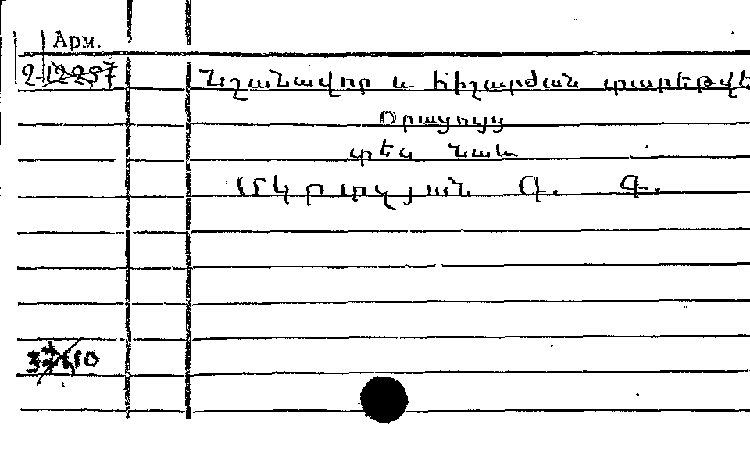 Арм.
2-12237
Նշանավոր և հիշարժան տարեթվե
Օրացույց
տես նաև
Մկրտչյան Գ.